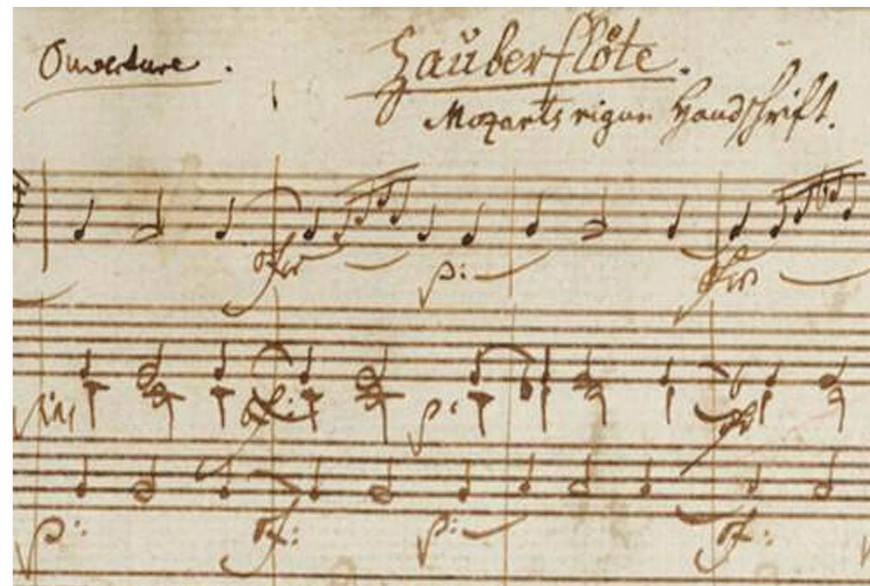 Ouverture.
Zauberflöte.
Mozarts eigene Handschrift.
sfp
p:
sfp
p:
p:
sf:
p:
sf: